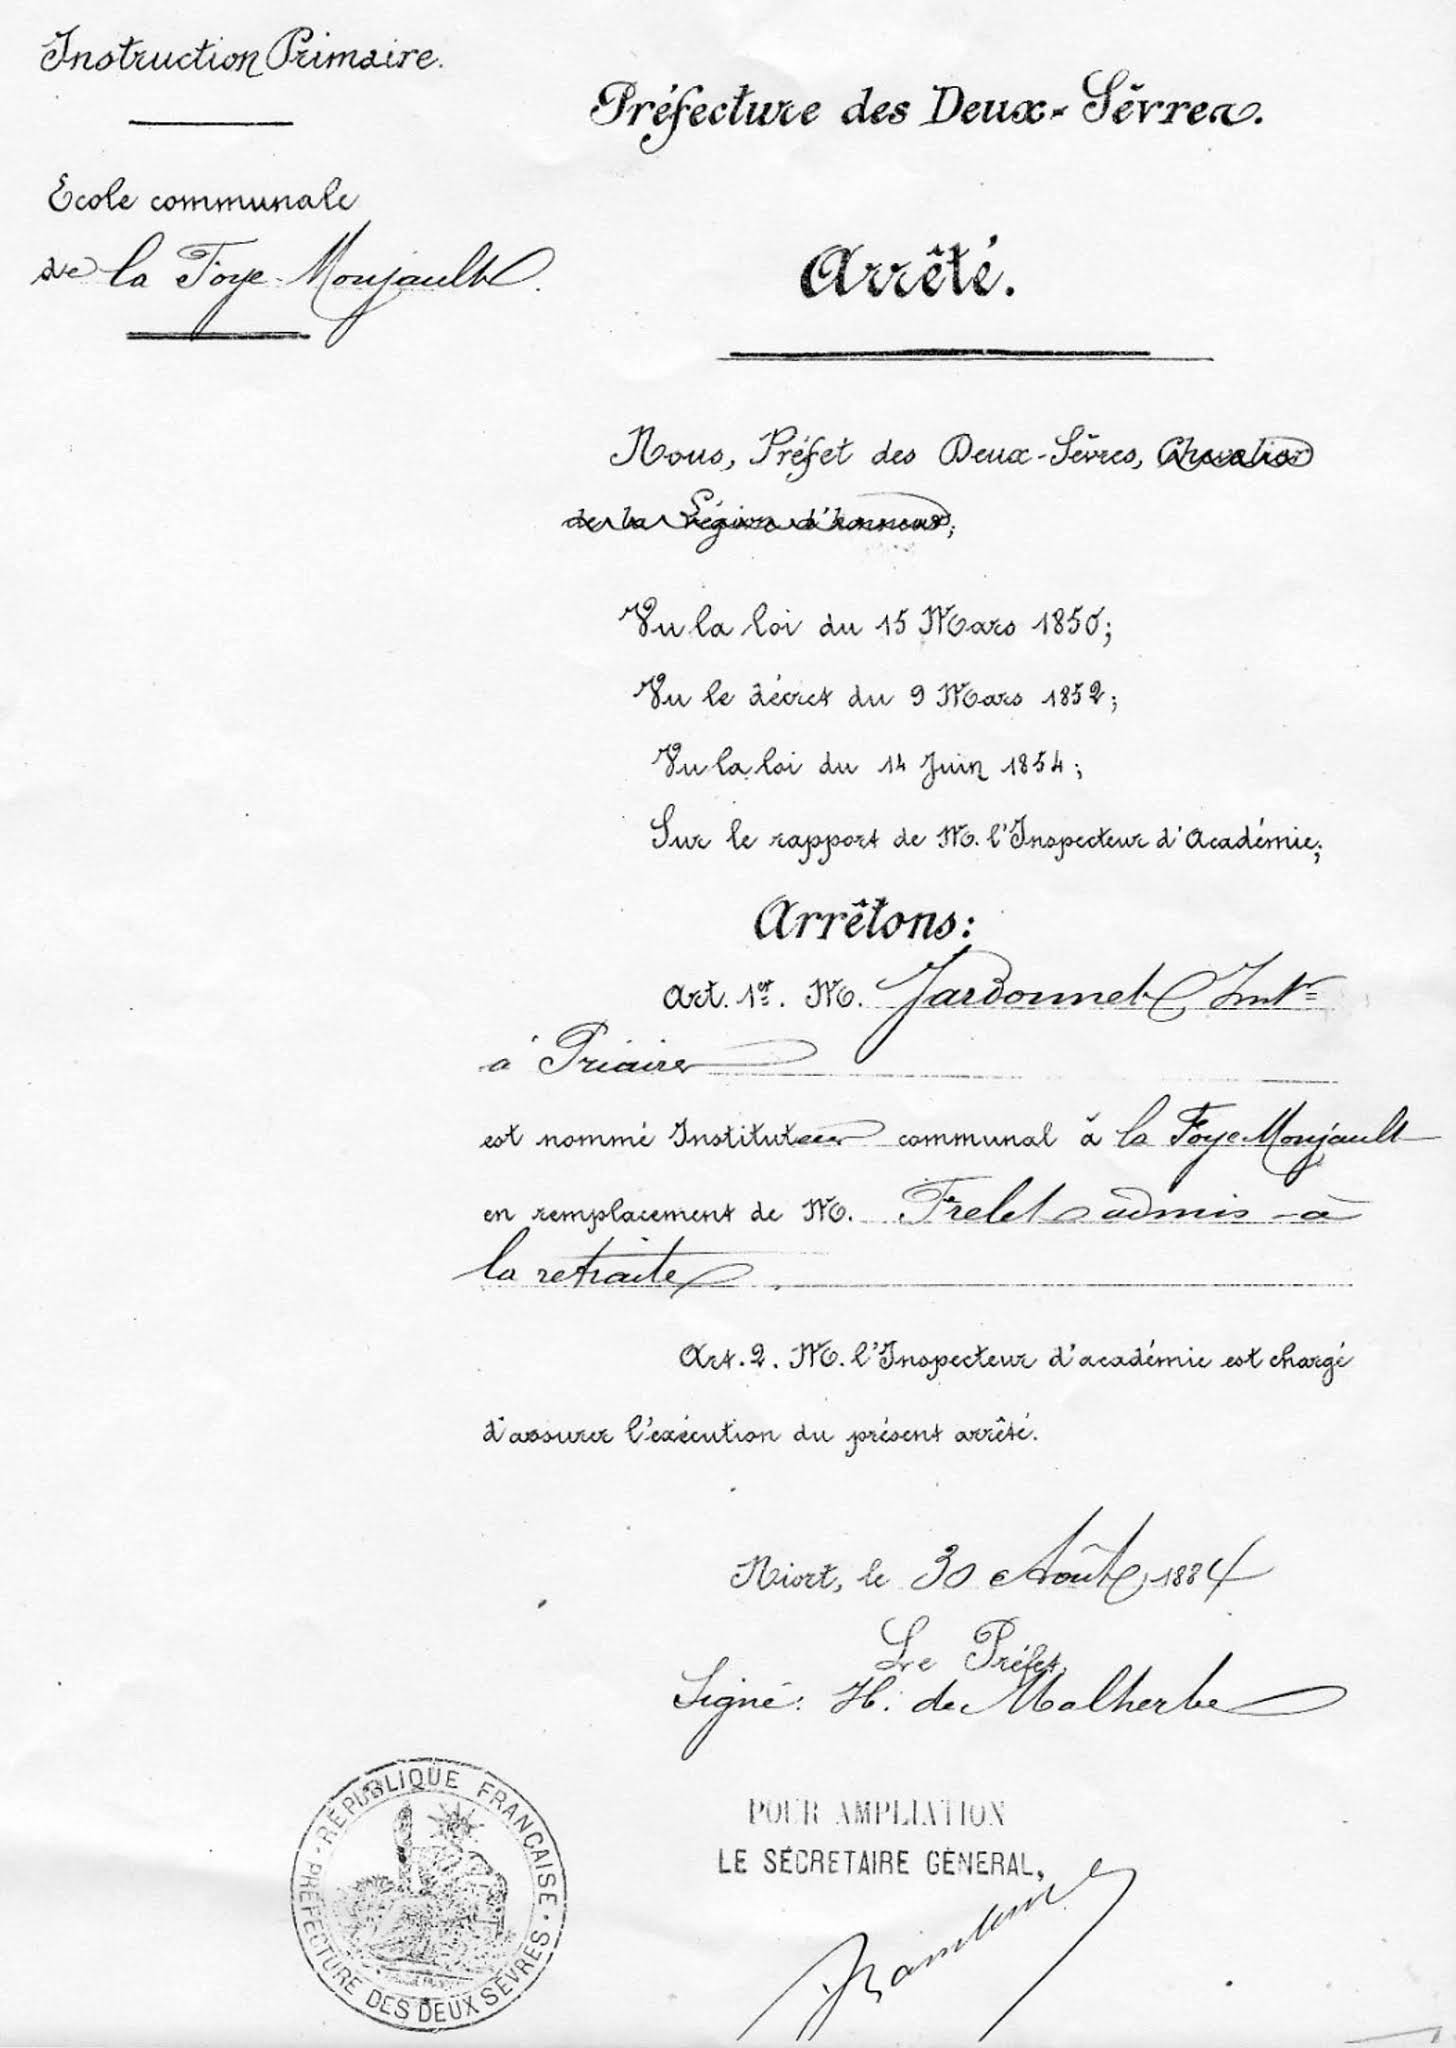 Instruction Primaire.
Ecole communale
de la Foye-Monjault.
Préfecture des Deux-Sèvres.
Arrêté.
Nous, Préfet des Deux-Sèvres, Chevalier
de la Légion d'honneur;
Vu la loi du 15 Mars 1850;
Vu le décret du 9 Mars 1852;
Vu la loi du 14 Juin 1854;
Sur le rapport de M. l'Inspecteur d'Académie;
Arrêtons:
Art. 1er. M. Jardonnet Intr
à Priaires
est nommé Instituteur communal à la Foye-Monjault
en remplacement de M. Frelet admis à
la retraite
Art. 2. M. l'Inspecteur d'académie est chargé
d'assurer l'exécution du présent arrêté.
Niort, le 30 Août 1884
Le Préfet,
Signé: H. de Malherbe
POUR AMPLIATION
LE SÉCRETAIRE GÉNERAL,
RÉPUBLIQUE FRANÇAISE
PRÉFECTURE DES DEUX SÈVRES